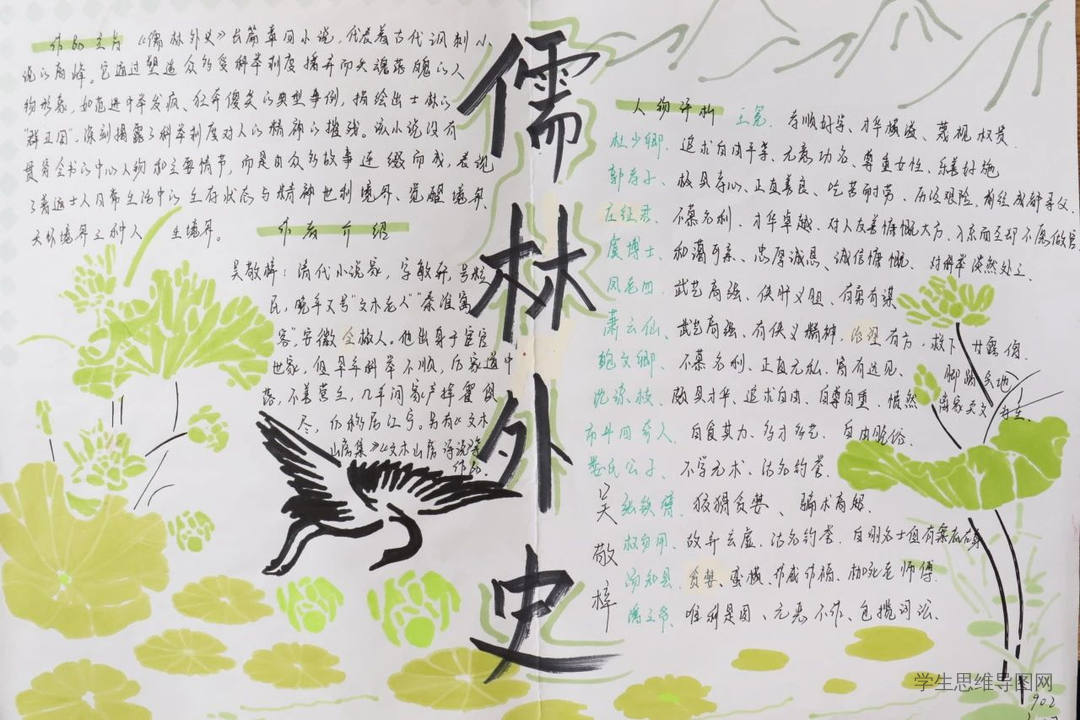 作品主旨 《儒林外史》长篇章回小说，代表着古代讽刺小
说的高峰。它通过塑造众多受科举制度播弄而失魂落魄的人
物形象，如范进中举发疯、狂奔傻笑的典型事例，描绘出士林的
"群丑图"。深刻揭露了科举制度对人的精神的摧残。该小说没有
贯穿全书的中心人物和主要情节，而是由众多故事连缀而成，表现
了普通士人日常生活中的生存状态与精神世利境界、觉醒境界、
生境界。
作者介绍
吴敬梓：清代小说家，字敏轩，号粒
民，晚年又号"文木老人""秦淮寓
客"，安徽全椒人。他出身于官宦
世家，但早年科举不顺，后家道中
落，不善营生，几年间家产挥霍俱
尽，后移居江宁。另有《文木
山房集》《文木山房诗说》等
作品。
儒林外史
吴敬梓
人物评析 王冕、孝顺好学、才华横溢、蔑视权贵
杜少卿、追求自由平等、无意功名、尊重女性、乐善好施
郭孝子、极具孝心、正直善良、吃苦耐劳、历经艰险，前往成都寻父
庄征君、不慕名利、才华卓越、对人友善慷慨大方、入京面圣却不愿做官
虞博士、和蔼可亲、忠厚诚恳、诚信慷慨、对科举淡然处之
凤老四、武艺高强、侠肝义胆、有勇有谋
萧云仙、武艺高强、有侠义精神，治理有方，救下甘露僧
鲍文卿、不慕名利、正直无私、富有远见、脚踏实地
沈琼枝、颇具才华、追求自由、自尊自重、愤然离家卖文为生
市井四奇人、自食其力、多才多艺、自由脱俗
娄氏公子、不学无术、沽名钓誉
张铁臂、狡猾贪婪、骗术高超
权勿用、故弄玄虚、沽名钓誉、自明名士
汤知县、贪婪、蛮横、作威作福、枷死老师傅
潘三爷、唯利是图、无恶不作、包揽词讼
学生思维导图网
902